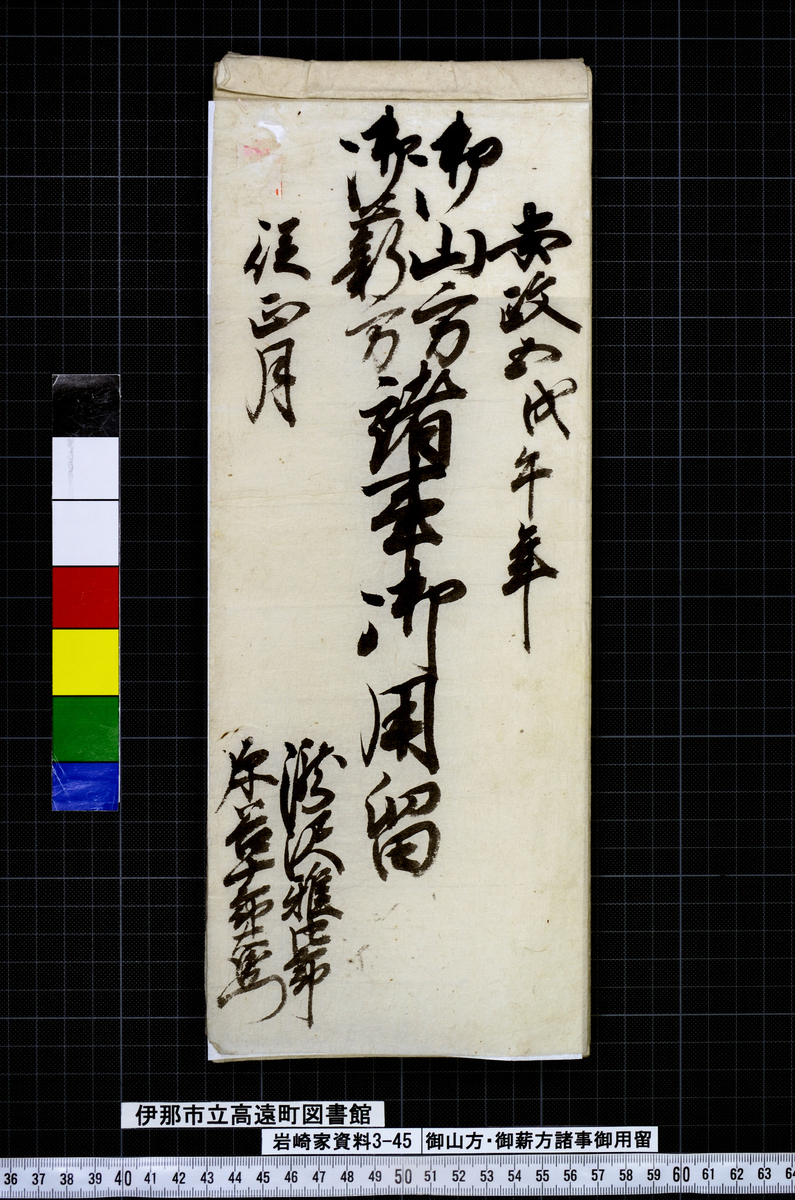 安政五戊午年
御山方
御薪方
諸事御用留
従正月
瀧沢雅四郎
原
伊那市立高遠町図書館
岩崎家資料3-45
御山方・御薪方諸事御用留
36 37 38 39 40 41 42 43 44 45 46 47 48 49 50 51 52 53 54 55 56 57 58 59 60 61 62 63 64